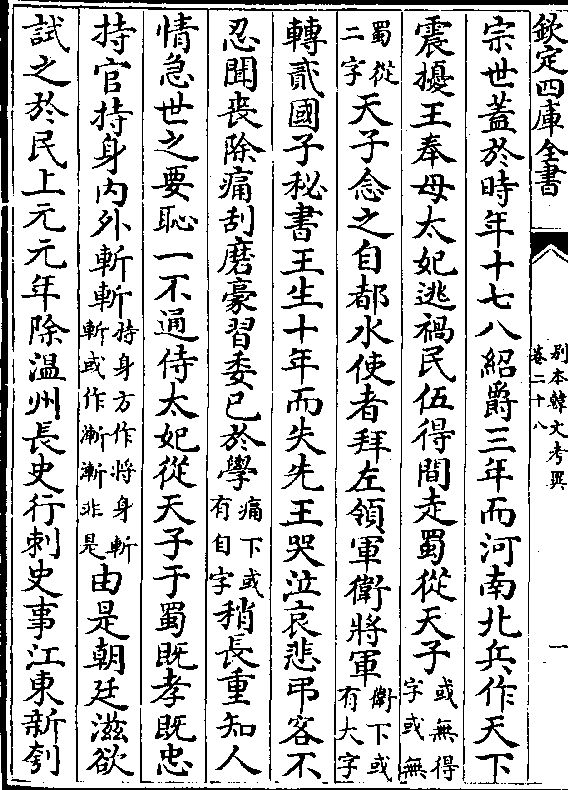 欽定四庫全書
別本韓文考異
卷二十八
一
宗世蓋於時年十七八紹爵三年而河南北兵作天下
震擾王奉母太妃逃禍民伍得間走蜀從天子或無得字或無
蜀從二字天子念之自都水使者拜左領軍衛將軍衛下或有大字
轉貳國子秘書王生十年而失先王哭泣哀悲弔客不
忍聞喪除痛刮磨豪習委已於學痛下或有自字稍長重知人
情急世之要恥一不通侍太妃從天子于蜀既孝既忠
持官持身內外斬斬持身方作將身斬斬或作漸漸非是由是朝廷滋欲
試之於民上元元年除温州長史行刺史事江東新刳